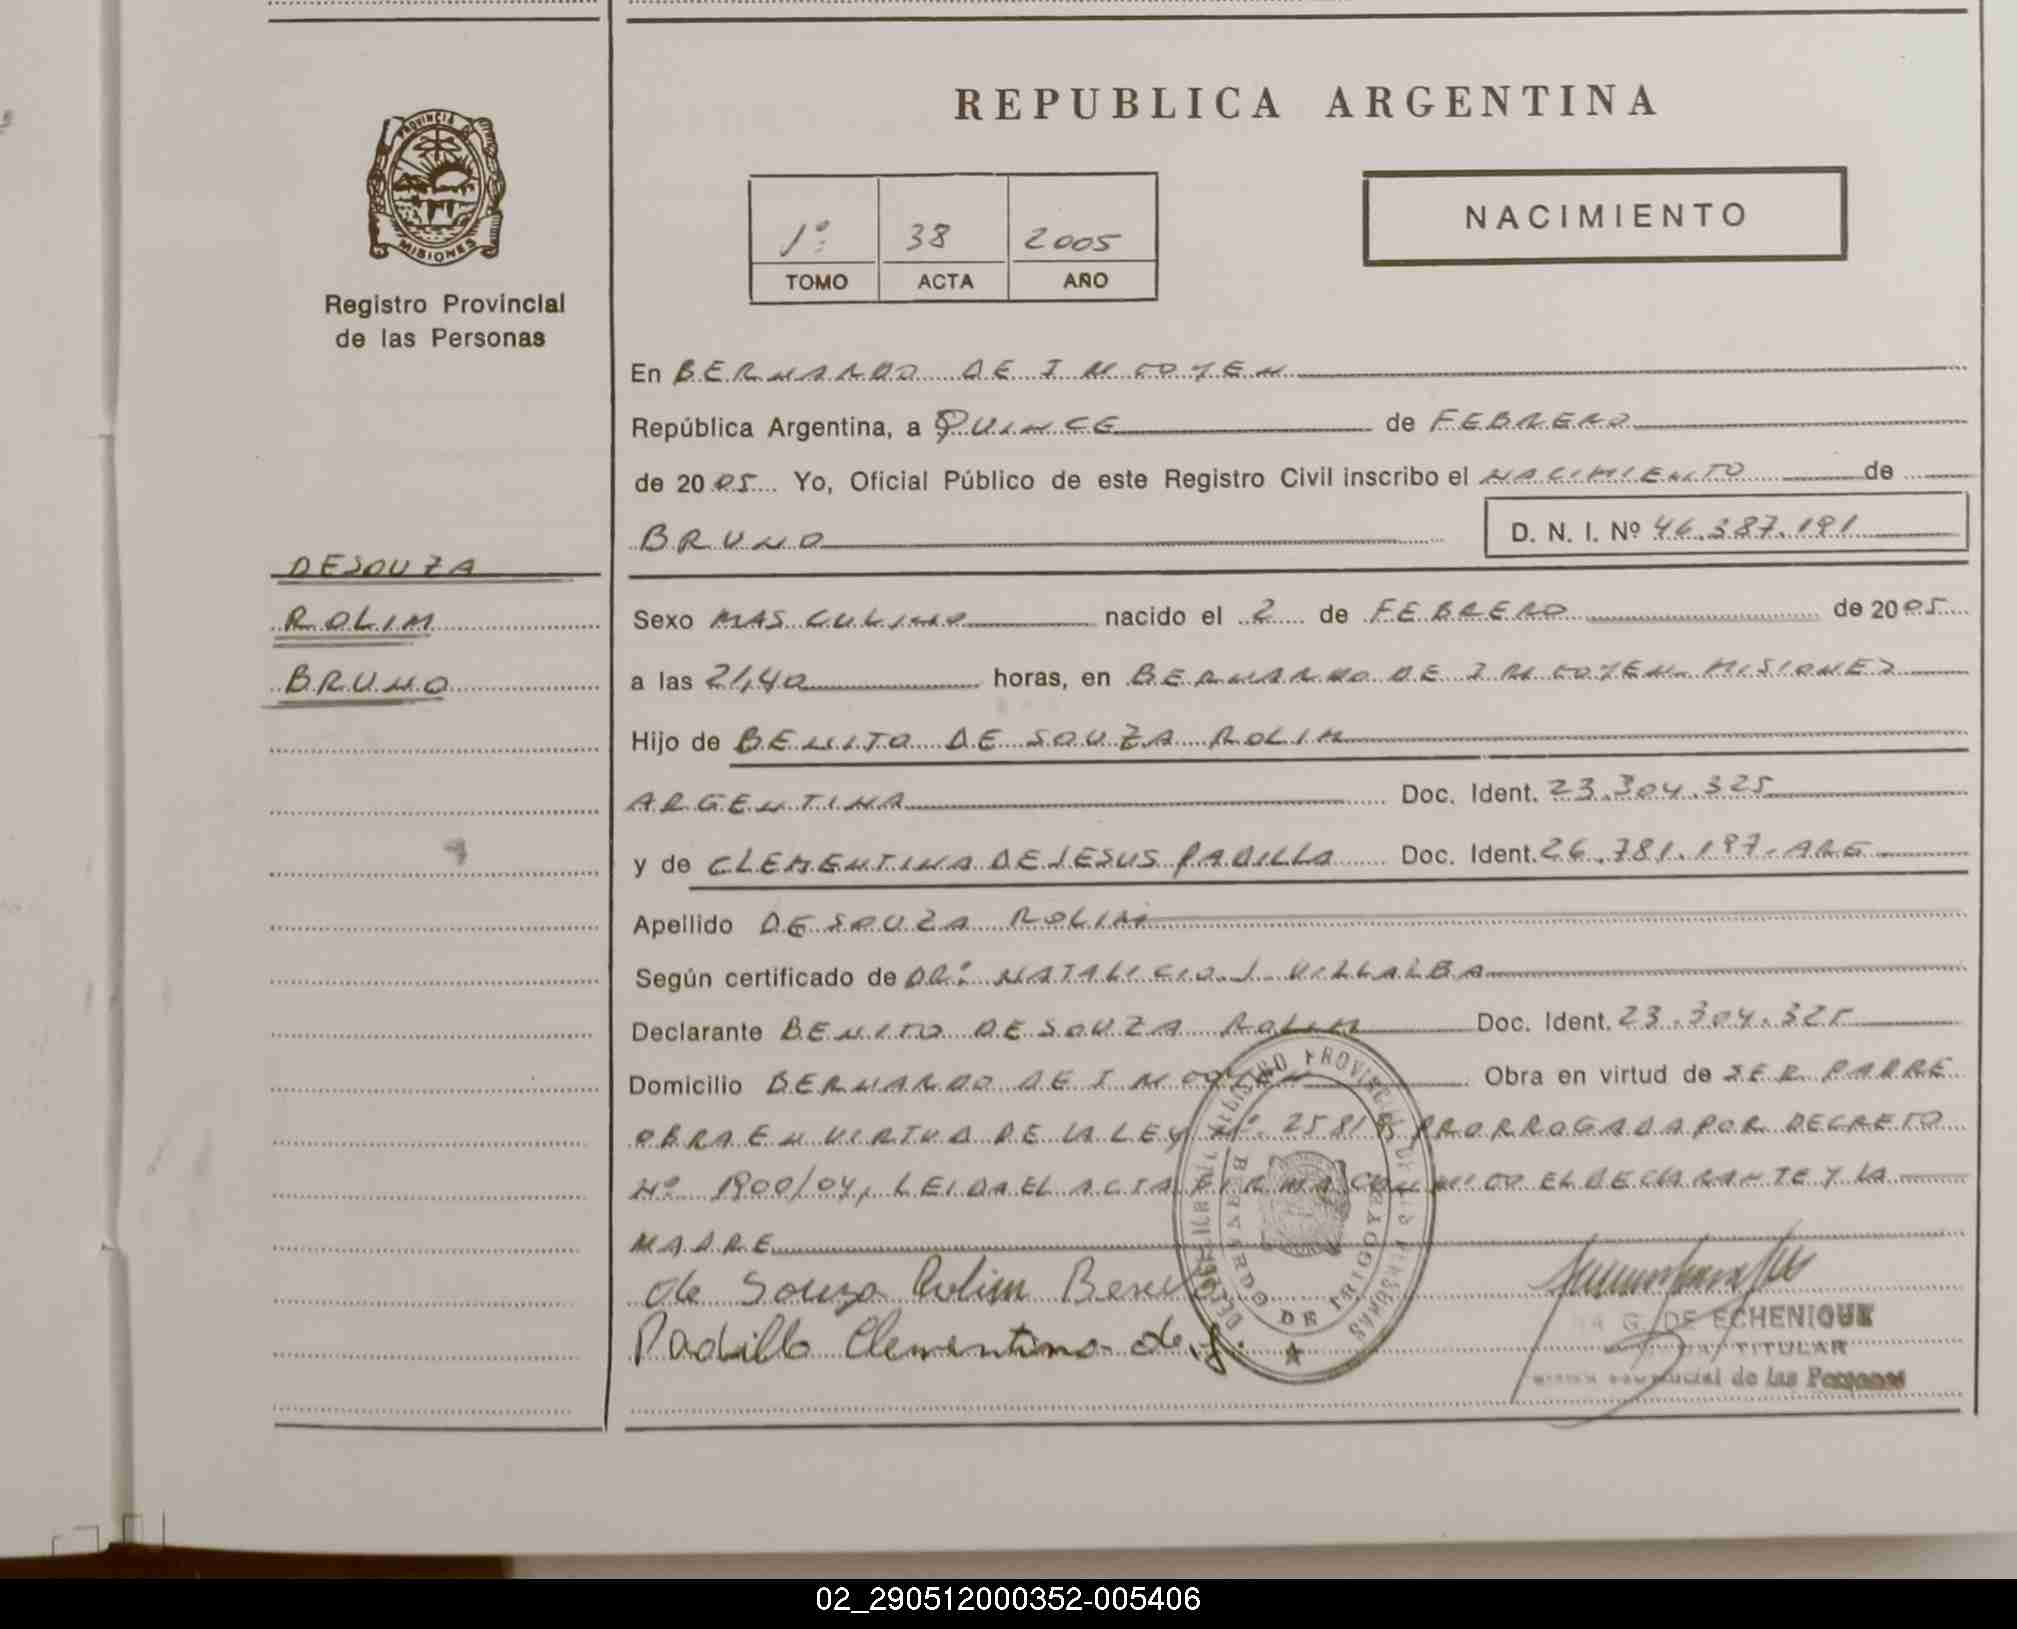 REPUBLICA ARGENTINA
PROVINCIA DE MISIONES
Registro Provincial
de las Personas
1º 38 2005
TOMO ACTA AÑO
NACIMIENTO
En BERNARDO DE IRIGOYEN
República Argentina, a QUINCE de FEBRERO
de 2005 Yo, Oficial Público de este Registro Civil inscribo el NACIMIENTO de
BRUNO D. N. I. Nº 46.387.191
DE SOUZA
ROLIM
BRUNO
Sexo MASCULINO nacido el 2 de FEBRERO de 2005
a las 21,40 horas, en BERNARDO DE IRIGOYEN MISIONES
Hijo de BENITO DE SOUZA ROLIM
ARGENTINA Doc. Ident. 23.304.325
y de CLEMENTINA DE JESUS PADILLA Doc. Ident. 26.781.197-ARG
Apellido DE SOUZA ROLIM
Según certificado de DR: NATALICIO J. VILLALBA
Declarante BENITO DE SOUZA ROLIM Doc. Ident. 23.304.325
Domicilio BERNARDO DE IRIGOYEN Obra en virtud de SER PADRE
OBRA EN VIRTUD DE LA LEY Nº 25819 PRORROGADA POR DECRETO
Nº 1900/04, LEIDA EL ACTA FIRMA CONMIGO EL DECLARANTE Y LA
MADRE
de Souza Rolim Benito
Padilla Clementina de J.
REGISTRO PROVINCIAL DE LAS PERSONAS
BERNARDO DE IRIGOYEN
G. DE ECHENIQUE
TITULAR
de las Personas
02_290512000352-005406